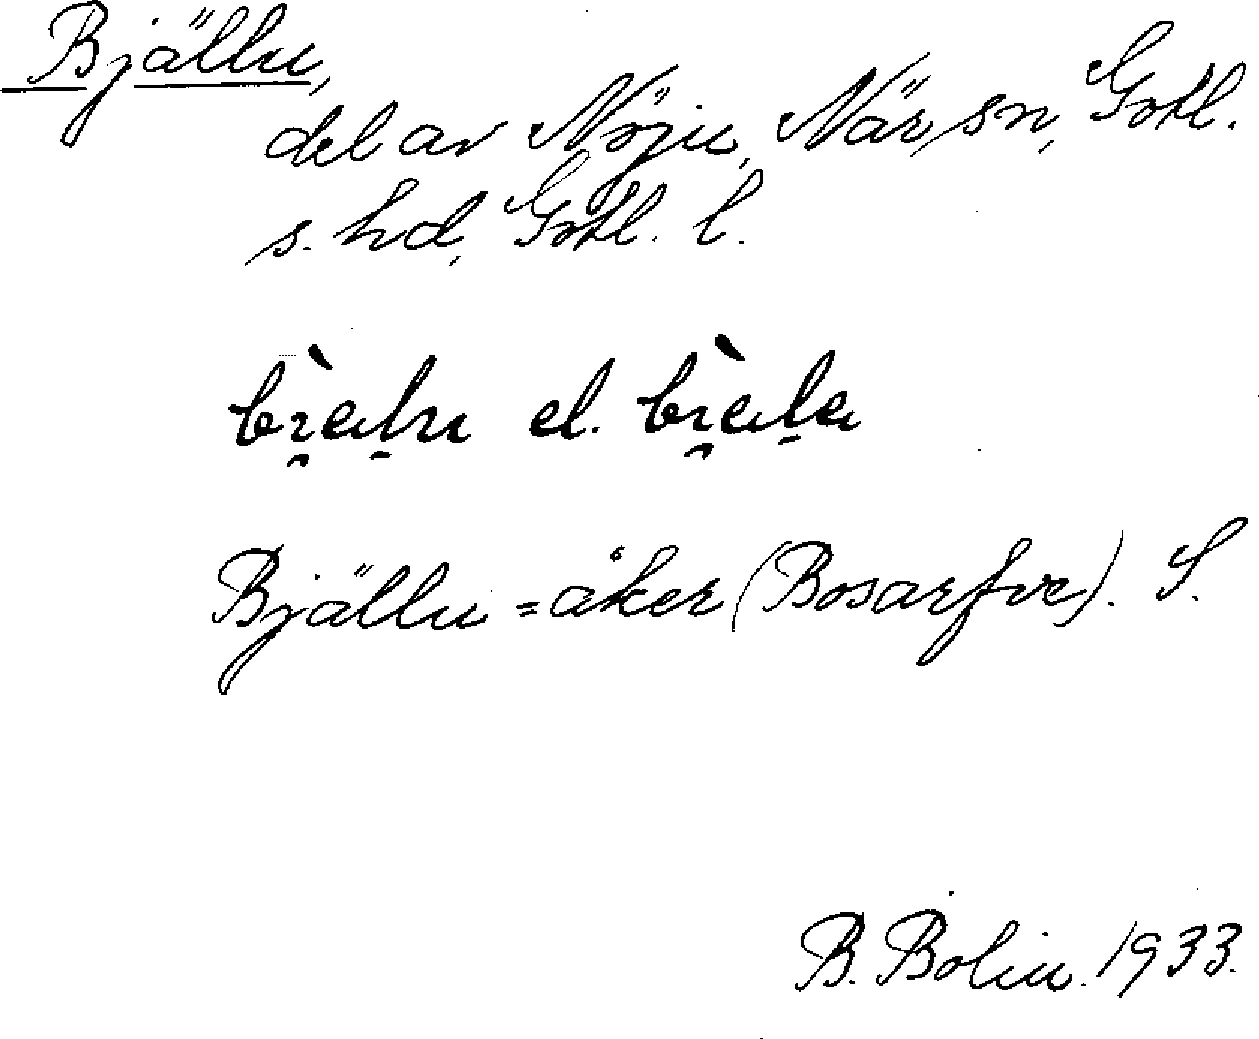 Bjällu,
del av Nöju, När, sn, Gotl.
s. hd, Gotl. l.
el.
Bjällu=åker (Bosarfve). S.
B. Bolin. 1933.